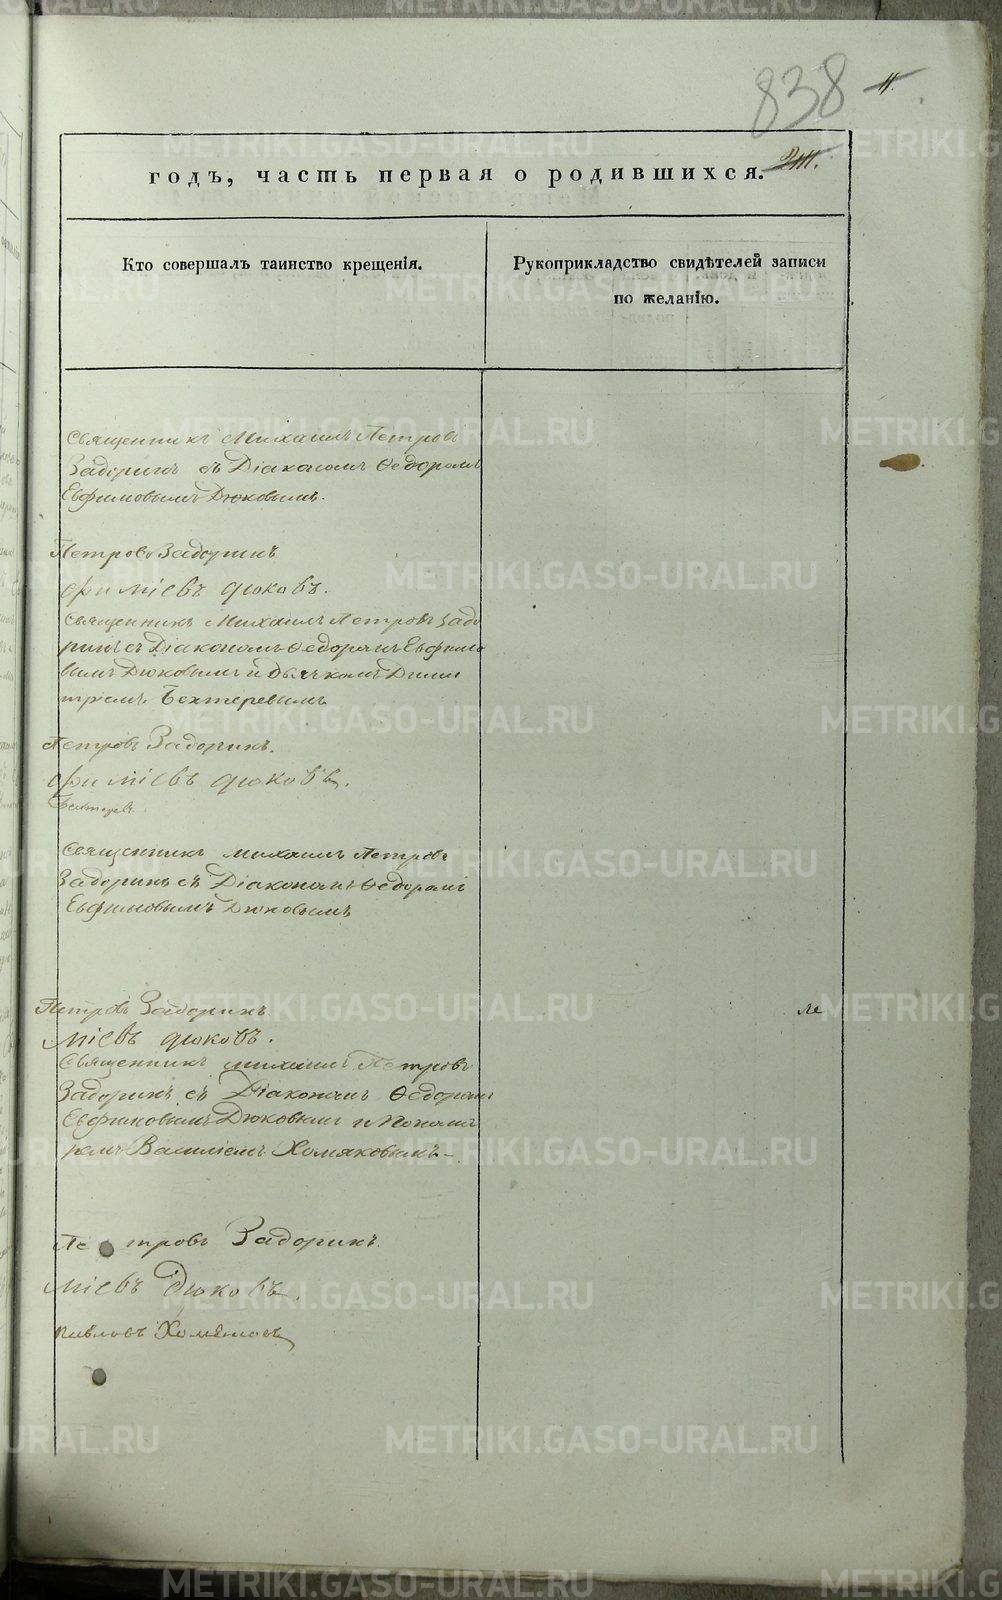 838 11.
годъ, часть первая о родившихся.
Кто совершалъ таинство крещенія.
Рукоприкладство свидѣтелей записи
по желанію.
Священникъ Михаилъ Петровъ
Задоринъ съ Діакономъ Ѳедоромъ
Евфимовымъ Дюковымъ.
Петровъ Задоринъ
Дюковъ.
Священникъ Михаилъ Петровъ Задо
ринъ съ Діакономъ Ѳедоромъ Евфимо
вымъ Дюковымъ и Дьячкомъ Дими
тріемъ Бехтеревымъ
Петровъ Задоринъ.
Дюковъ.
Бехтеревъ.
Священникъ Михаилъ Петровъ
Задоринъ съ Діакономъ Ѳедоромъ
Евфимовымъ Дюковымъ
Петровъ Задоринъ
міевъ Дюковъ.
Священникъ Михаилъ Петровъ
Задоринъ съ Діакономъ Ѳедоромъ
Евфимовымъ Дюковымъ и Понома
ремъ Василіемъ Хомяковымъ.
Петровъ Задоринъ
міевъ Дюковъ.
Павловъ Хомяковъ
METRIKI.GASO-URAL.RU